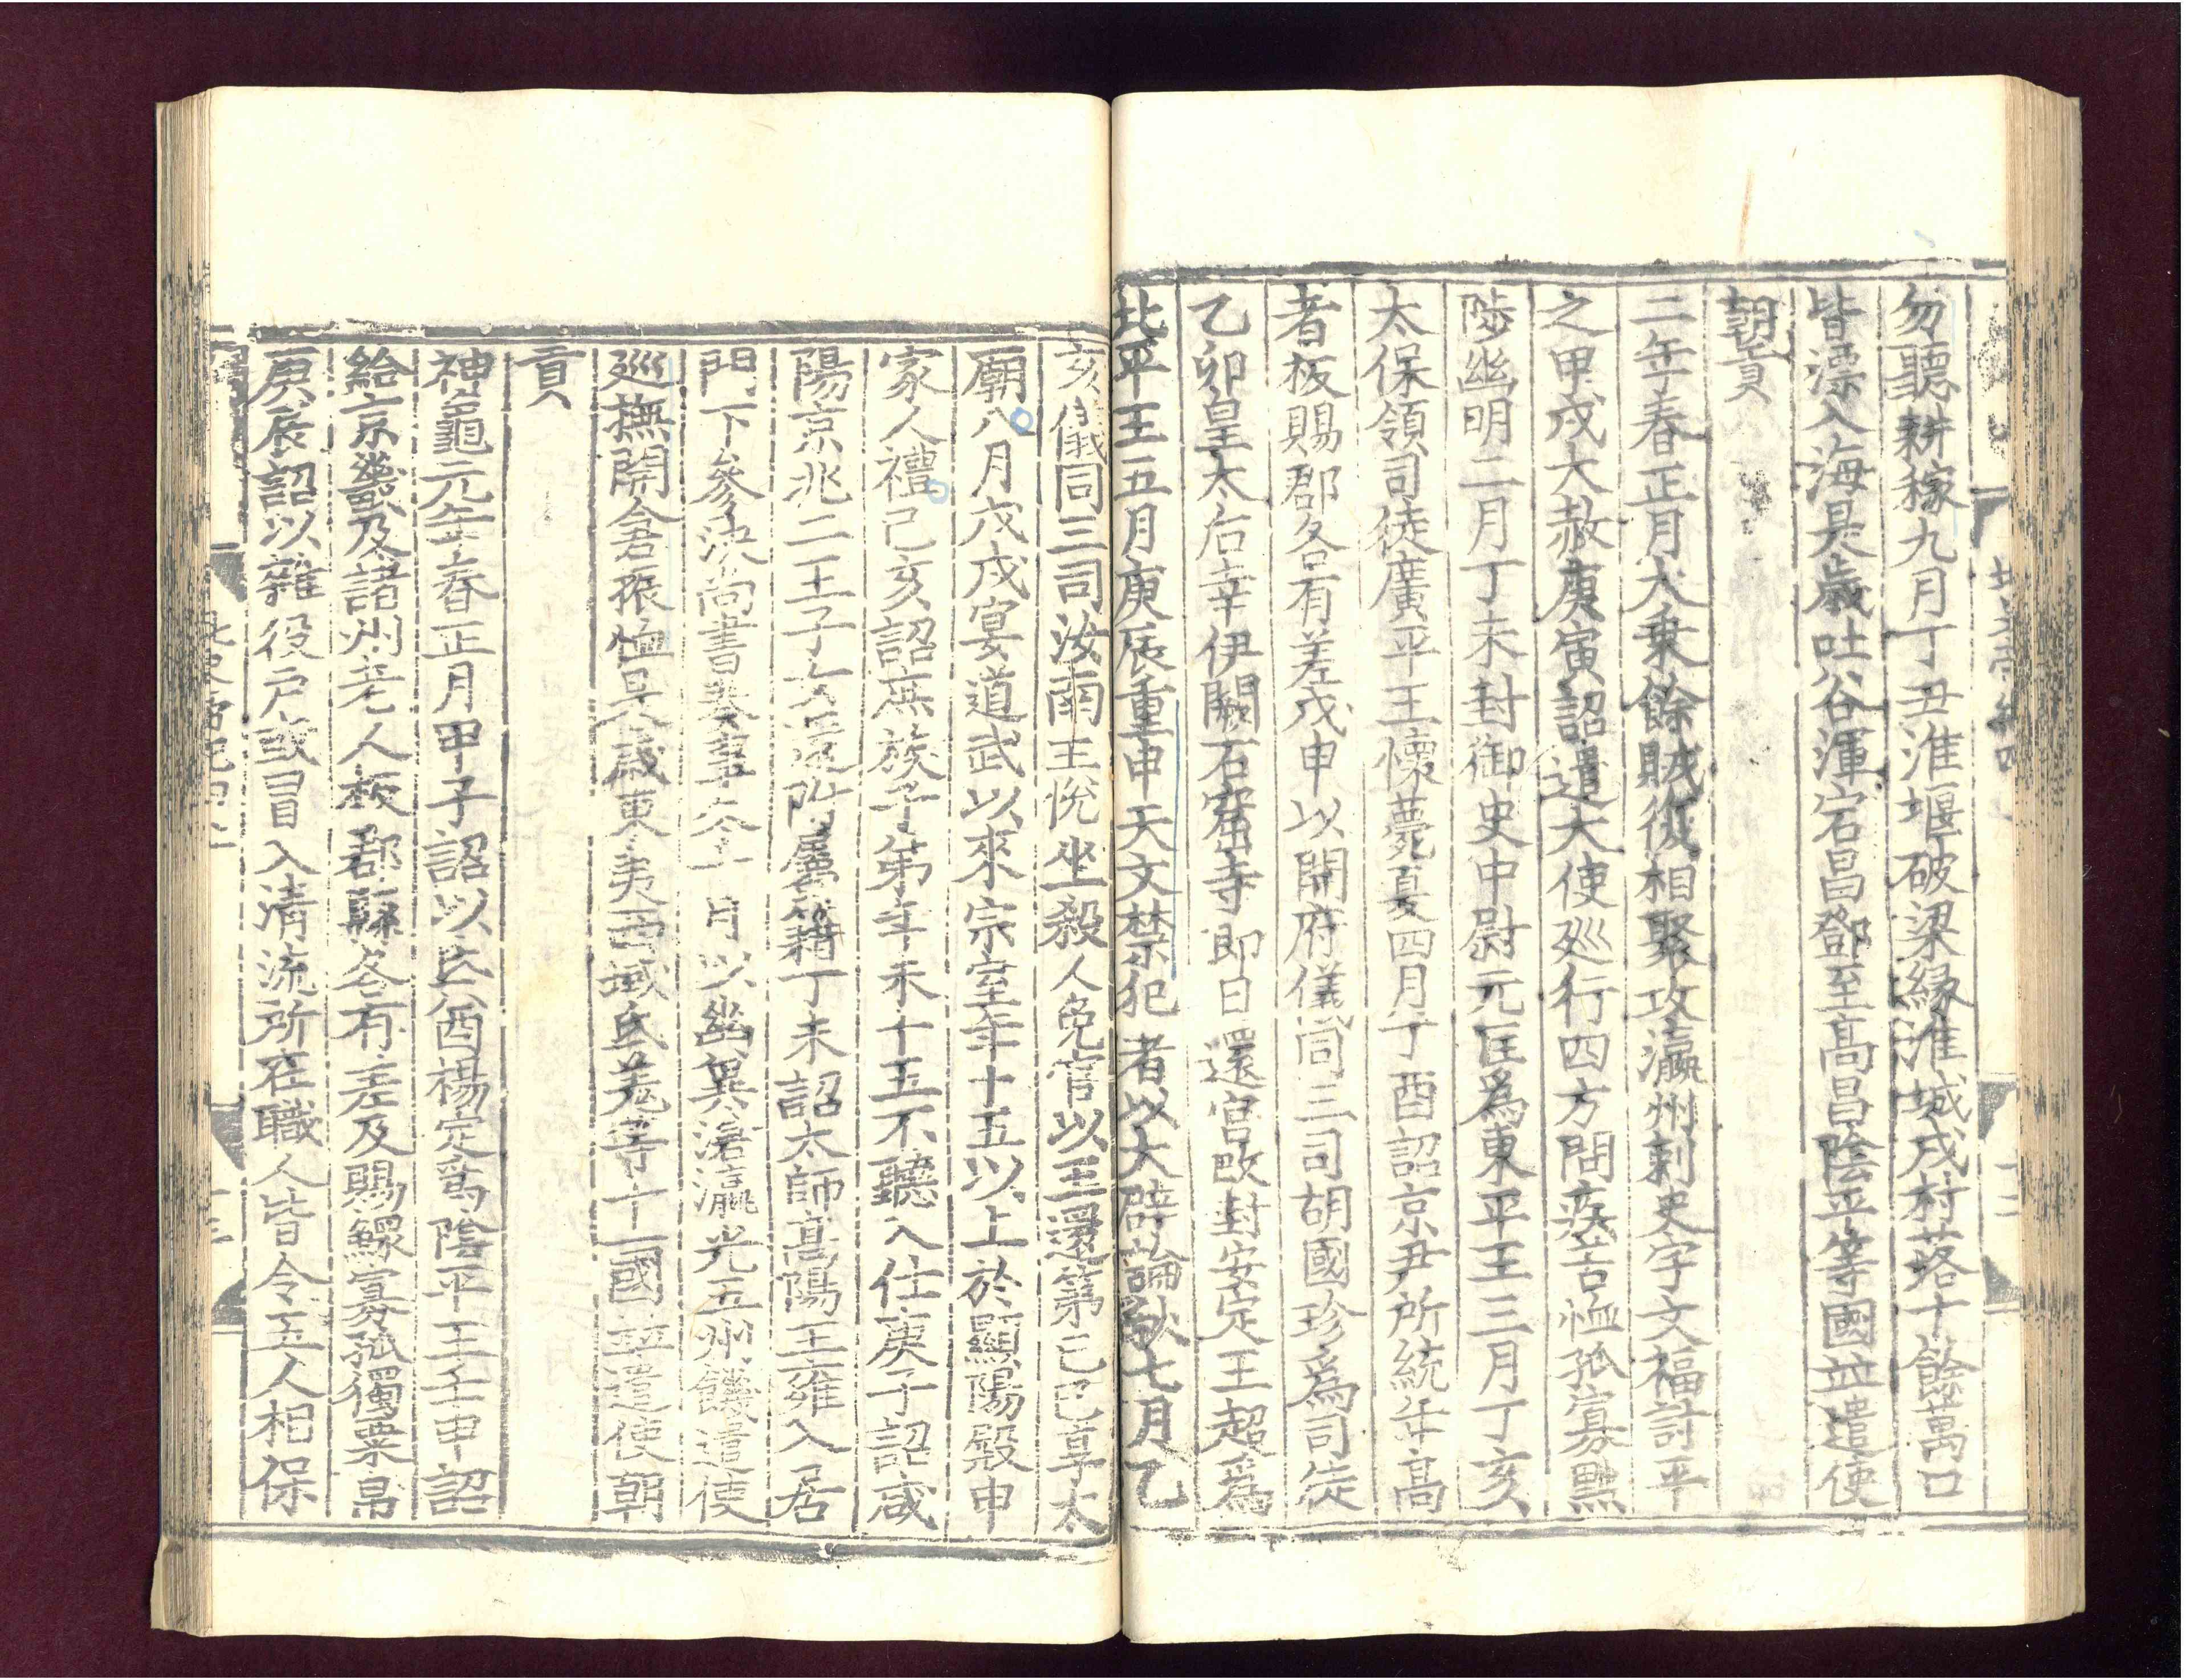 勿聽耕稼九月丁丑淮堰破梁縁淮城戍村落十餘萬口
皆漂入海是歳吐谷渾宕昌鄧至高昌陰平等國並遣使
朝貢
二年春正月大乗餘賊復相聚攻瀛州刺史宇文福討平
之甲戌大赦庚寅詔遣大使廵行四方問疾苦恤孤寡黜
陟幽明二月丁未封御史中尉元匡爲東平王三月丁亥
太保領司徒廣平王懷薨夏四月丁酉詔京尹所統年高
者板賜郡各有差戊申以開府儀同三司胡國珍爲司徒
乙卯皇太后幸伊闕石窟寺即日還宮改封安定王超爲
北平王五月庚辰重申天文禁犯者以大辟論秋七月乙
亥儀同三司汝南王悅坐殺人免官以王還第己巳享太
廟八月戊戌宴道武以來宗室年十五以上於顯陽殿申
家人禮己亥詔庶族子弟年未十五不聽入仕庚子詔咸
陽京兆二王子女還附屬籍丁未詔太師高陽王雍入居
門下參決尚書奏事冬十月以幽兾滄瀛光五州饑遣使
廵撫開倉振恤是歳東夷西域氐羗等十一國並遣使朝
貢
神龜元年春正月甲子詔以氐酋楊定爲陰平王壬申詔
給京畿及諸州老人板郡縣各有差及賜鰥寡孤獨粟帛
庚辰詔以雜役戸或冒入清流所在職人皆令五人相保